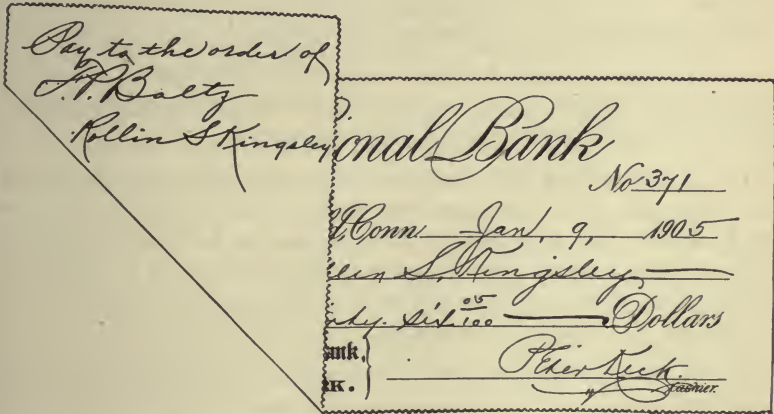 Pay to the order of
F. P. Baltz
Rollin S Kingsley
ional Bank
No 371
Conn Jan. 9, 1905
llin S. Kingsley
nty six 05/100 Dollars
ank,
K.
Peter Keck
Cashier.